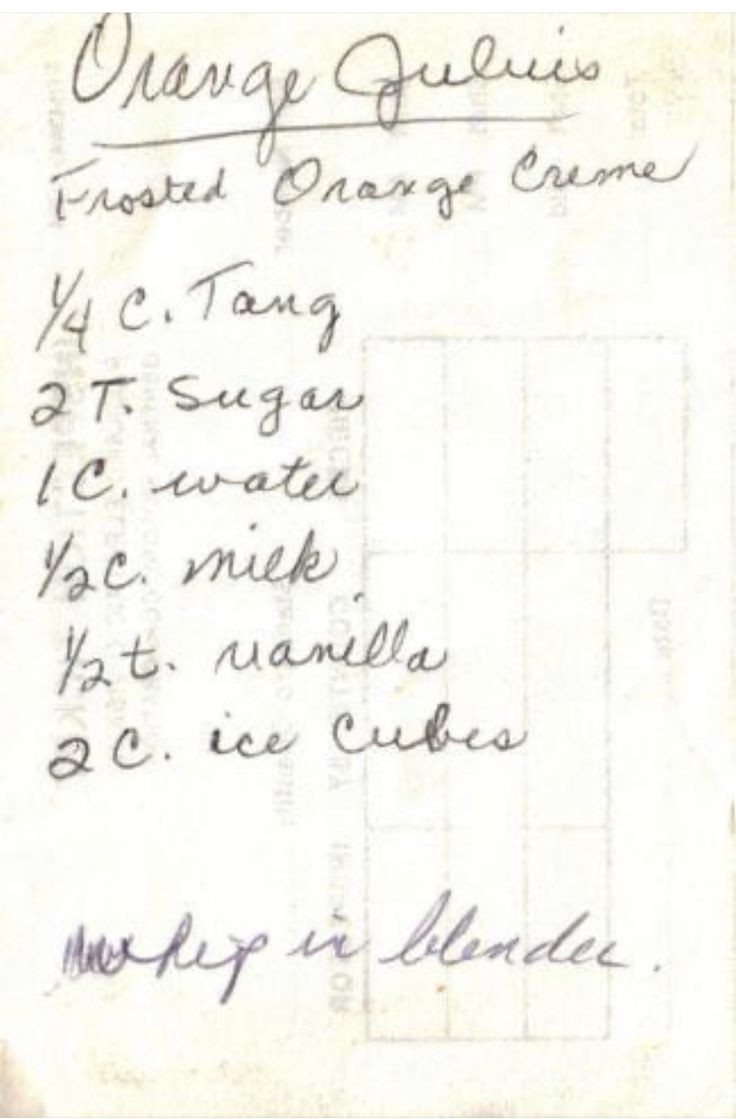 Orange Julius
Frosted Orange Creme
1/4 C. Tang
2 T. Sugar
1 C. water
1/2 C. milk
1/2 t. vanilla
2 C. ice cubes
whip in blender.